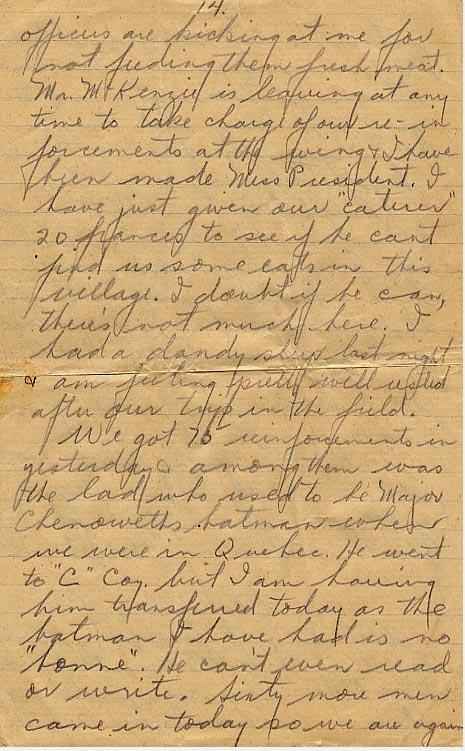 14.
officers are kicking at me for
not feeding them fresh meat.
Mr. McKenzie is leaving at any
time to take charge of our re-in
forcements at the wing & I have
been made Mess President. I
have just given our "caterer"
20 francs to see if he cant
find us some eats in this
village. I doubt if he can,
there's not much here. I
had a dandy sleep last night
& am feeling pretty well rested
after our trip in the field.
We got 75 reinforcements in
yesterday & among them was
the lad who used to be Major
Chenoweths batman when
we were in Quebec. He went
to "C" Coy. but I am having
him transferred today as the
batman I have had is no
"bonne". He can't even read
or write. Sixty more men
came in today so we are again